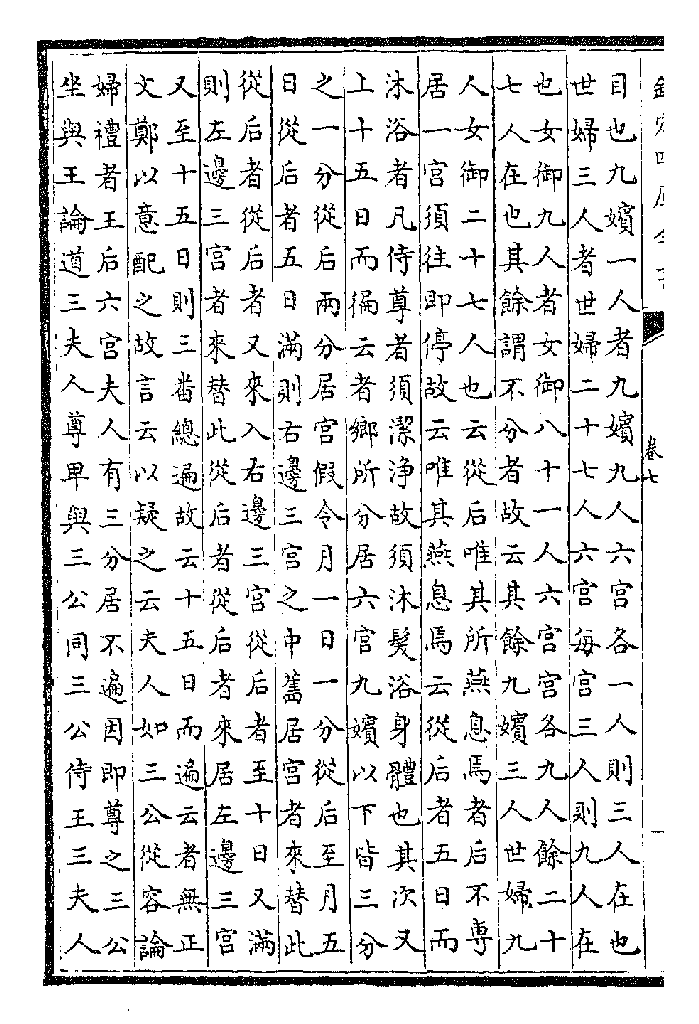 欽定四庫全書
卷七
目也九嬪一人者九嬪九人六宮各一人則三人在也
世婦三人者世婦二十七人六宮每宮三人則九人在
也女御九人者女御八十一人六宮宮各九人餘二十
七人在也其餘謂不分者故云其餘九嬪三人世婦九
人女御二十七人也云從后唯其所燕息焉者后不專
居一宮須往即停故云唯其燕息焉云從后者五日而
沐浴者凡侍尊者須潔淨故須沐髮浴身體也其次又
上十五日而徧云者鄉所分居六官九嬪以下皆三分
之一分從后兩分居宮假令月一日一分從后至月五
日從后者五日滿則右邊三宮之中舊居宮者來替此
從后者從后者又來入右邊三宮從后者至十日又滿
則左邊三宮者來替此從后者從后者來居左邊三宮
又至十五日則三番總遍故云十五日而遍云者無正
文鄭以意配之故言云以疑之云夫人如三公從容論
婦禮者王后六宮夫人有三分居不遍因即尊之三公
坐與王論道三夫人尊卑與三公同三公侍王三夫人